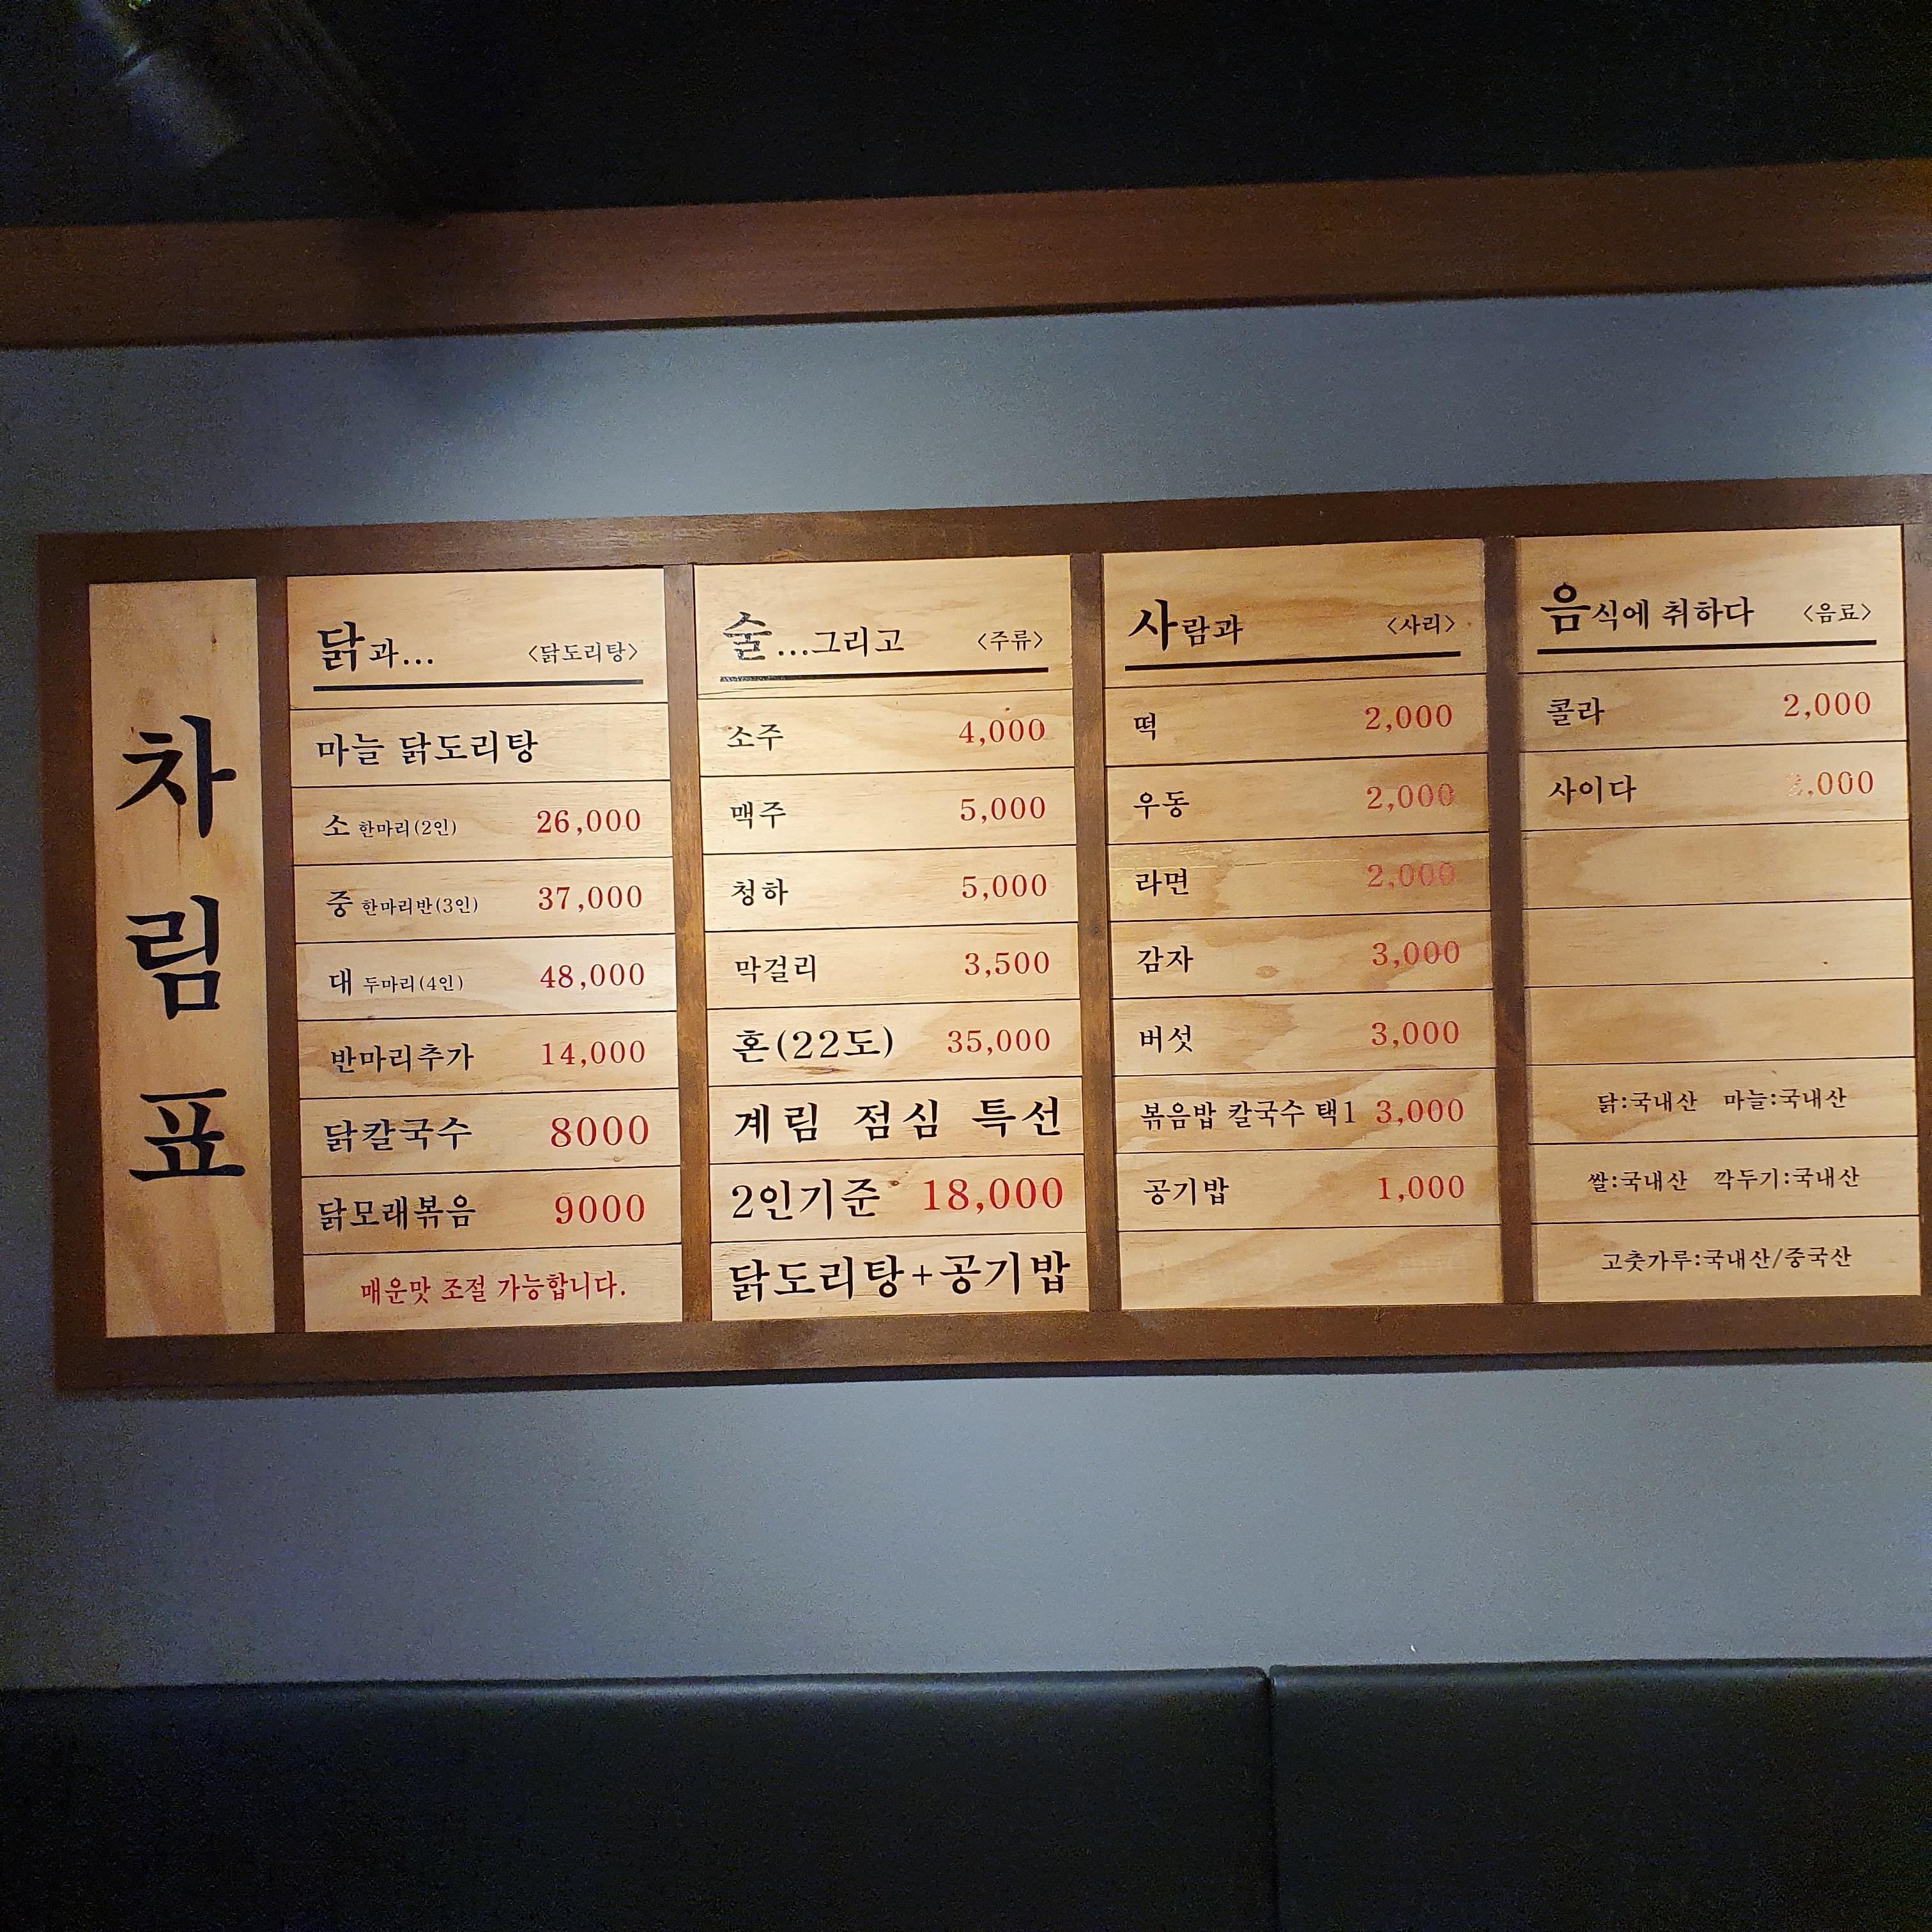 차림표
닭과... <닭도리탕>
마늘 닭도리탕
소 한마리(2인) 26,000
중 한마리반(3인) 37,000
대 두마리(4인) 48,000
반마리추가 14,000
닭칼국수 8000
닭모래볶음 9000
매운맛 조절 가능합니다.
술...그리고 <주류>
소주 4,000
맥주 5,000
청하 5,000
막걸리 3,500
혼(22도) 35,000
계림 점심 특선
2인기준 18,000
닭도리탕+공기밥
사람과 <사리>
떡 2,000
우동 2,000
라면 2,000
감자 3,000
버섯 3,000
볶음밥 칼국수 택1 3,000
공기밥 1,000
음식에 취하다 <음료>
콜라 2,000
사이다 2,000
닭:국내산 마늘:국내산
쌀:국내산 깍두기:국내산
고춧가루:국내산/중국산